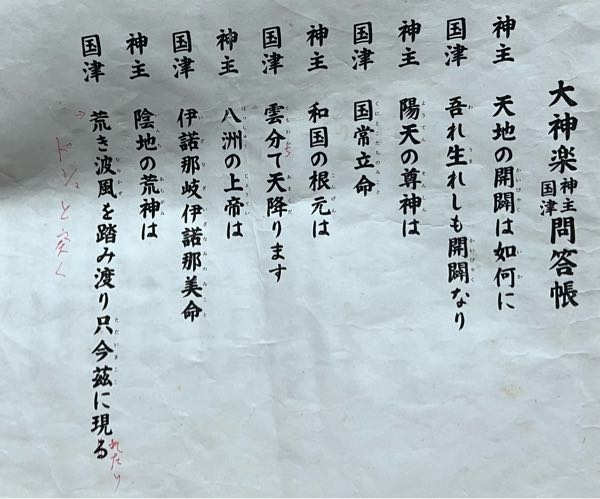 大神楽 神主 国津 問答帳
神主 天地の開闢は如何に
国津 吾れ生れしも開闢なり
神主 陽天の尊神は
国津 国常立命
神主 和国の根元は
国津 雲分て天降ります
神主 八洲の上帝は
国津 伊諾那岐伊諾那美命
神主 陰地の荒神は
国津 荒き波風を踏み渡り只今茲に現る
れたり